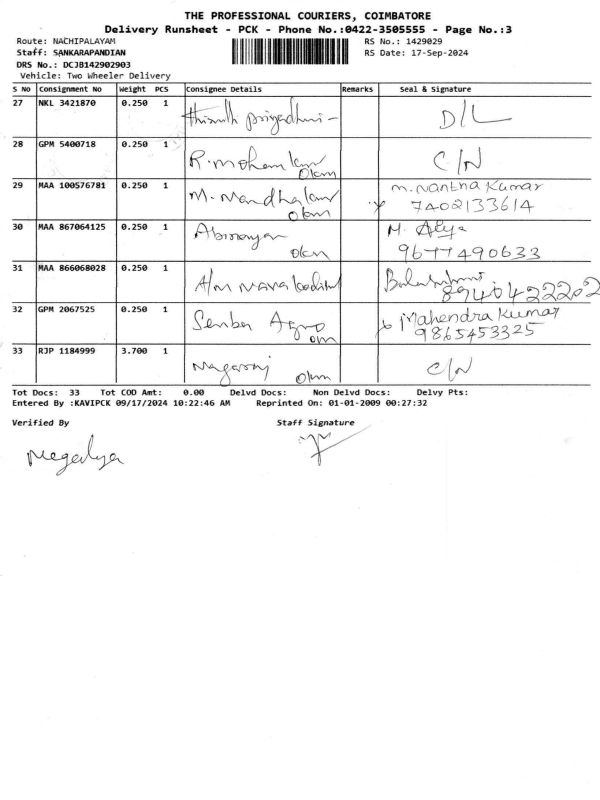 THE PROFESSIONAL COURIERS, COIMBATORE
Delivery Runsheet - PCK - Phone No.:0422-3505555 - Page No.:3
Route: NACHIPALAYAM RS No.: 1429029
Staff: SANKARAPANDIAN RS Date: 17-Sep-2024
DRS No.: DCJB142902903
Vehicle: Two Wheeler Delivery
S No Consignment No Weight PCS Consignee Details Remarks Seal & Signature
27 NKL 3421870 0.250 1 D/L
28 GPM 5400718 0.250 1 R. Mohan C/N
29 MAA 100576781 0.250 1 M. Nandha M. Nantha Kumar
7402133614
30 MAA 867064125 0.250 1 M. Alya
9677490633
31 MAA 866068028 0.250 1
8940422202
32 GPM 2067525 0.250 1 Senba Agro Mahendra Kumar
9865453325
33 RJP 1184999 3.700 1 Nagaraj C/N
Tot Docs: 33 Tot COD Amt: 0.00 Delvd Docs: Non Delvd Docs: Delvy Pts:
Entered By :KAVIPCK 09/17/2024 10:22:46 AM Reprinted On: 01-01-2009 00:27:32
Verified By Staff Signature